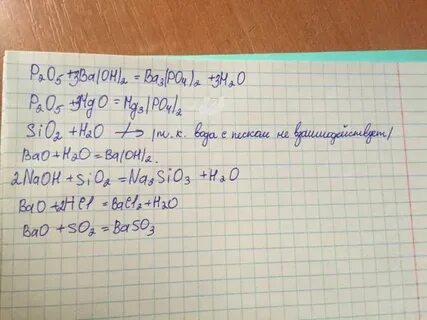 P₂O₅ + 3Ba(OH)₂ = Ba₃(PO₄)₂ + 3H₂O
P₂O₅ + 3MgO = Mg₃(PO₄)₂
SiO₂ + H₂O ↛ (т. к. вода с песком не взаимодействует)
BaO + H₂O = Ba(OH)₂.
2NaOH + SiO₂ = Na₂SiO₃ + H₂O
BaO + 2HCl = BaCl₂ + H₂O
BaO + SO₂ = BaSO₃